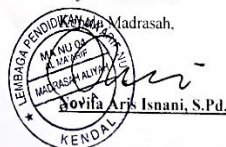 Kepala Madrasah,
LEMBAGA PENDIDIKAN MA'ARIF NU
MA NU 04
AL MA'ARIF
MADRASAH ALIYAH
KENDAL
Novita Aris Isnani, S.Pd.